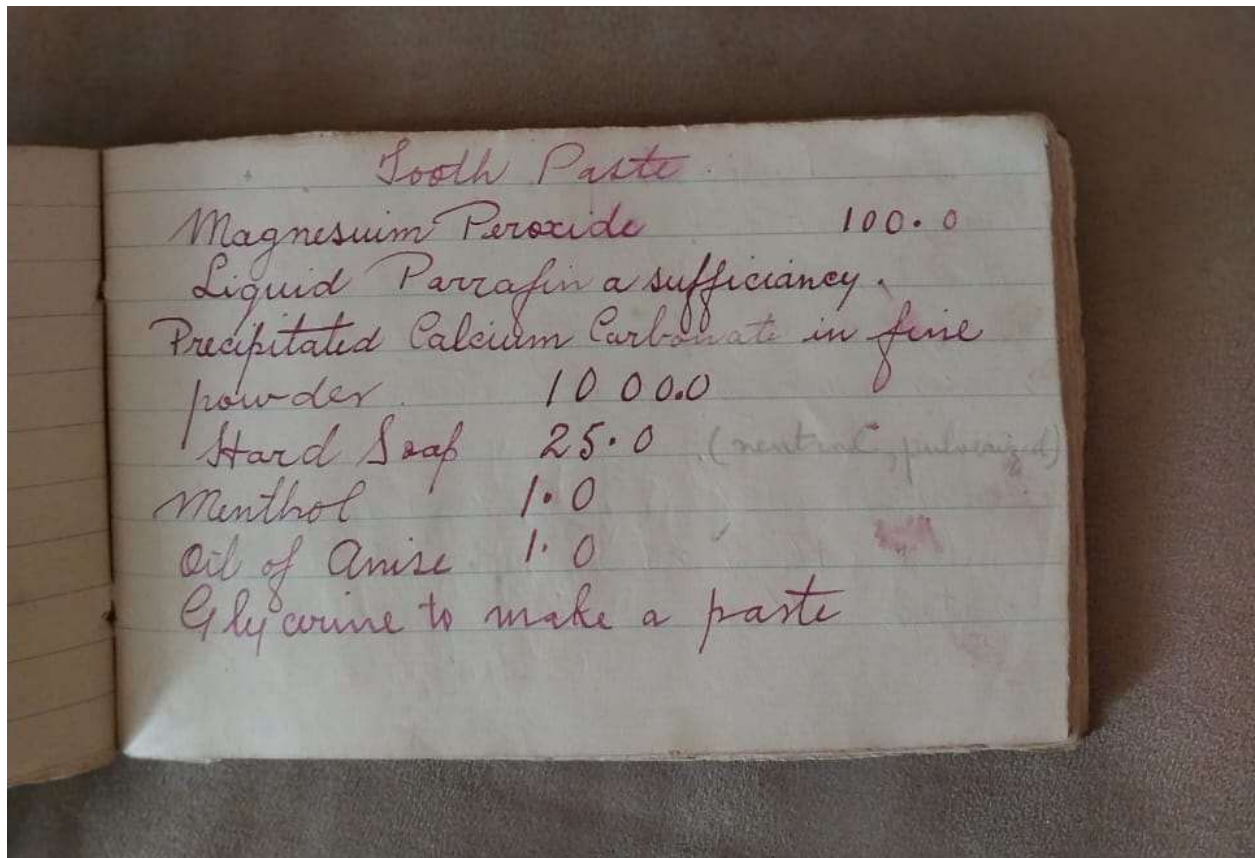 Tooth Paste.
Magnesuim Peroxide 100.0
Liquid Parrafin a sufficiancy.
Precipitated Calcium Carbonate in fine
powder. 1000.0
Hard Soap 25.0 (neutral, pulverized)
Menthol 1.0
Oil of Anise 1.0
Glycerine to make a paste